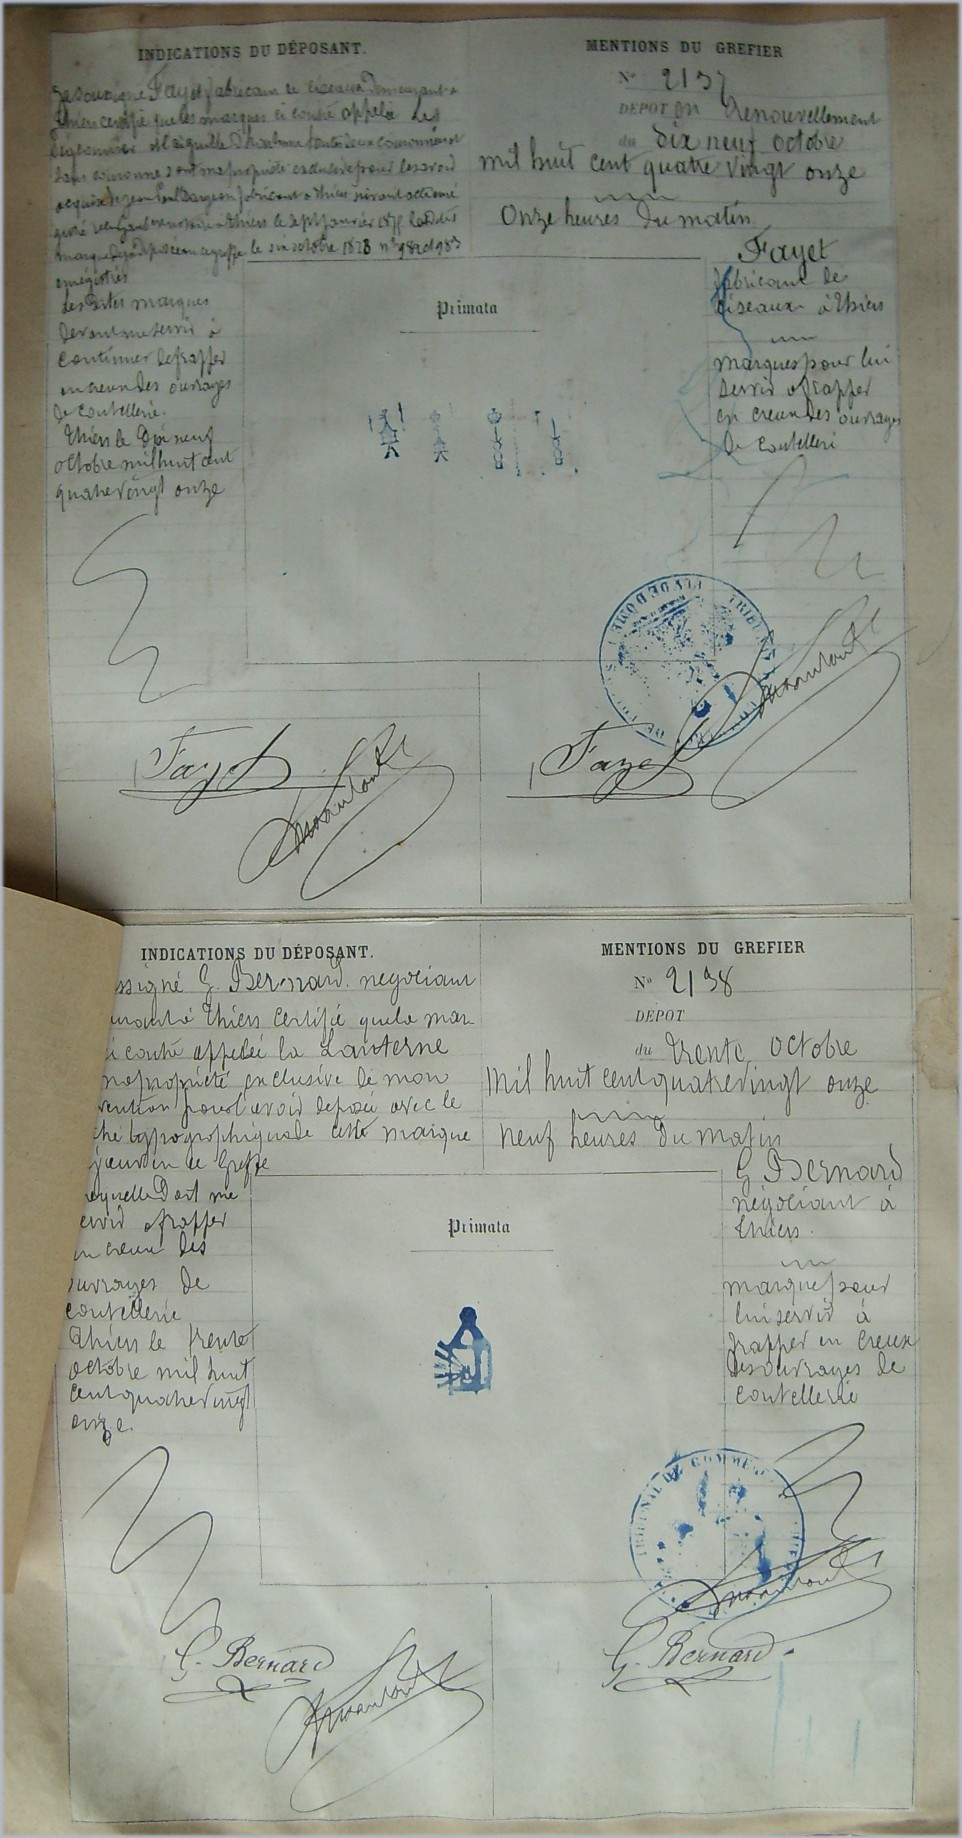 INDICATIONS DU DÉPOSANT.
Je soussigné Fayet fabricant de ciseaux demeurant à
Thiers certifie que les marques ci contre appelée les
sans couronne sont ma propriété exclusive pour les avoir
acquises de Jean fabricant à Thiers suivant acte sous
notaire à Thiers le sept janvier
marque déjà déposée au greffe le six octobre 1873 nos 982 et 983
enregistrés
les dites marques
devant me servir à
continuer de frapper
en creux des ouvrages
de coutellerie.
Thiers le dix neuf
octobre mil huit cent
quatre vingt onze
MENTIONS DU GREFIER
No 2137
DÉPOT en renouvellement
du dix neuf octobre
mil huit cent quatre vingt onze
Onze heures du matin
Fayet
fabricant de
ciseaux à Thiers
marques pour lui
servir à frapper
en creux des ouvrages
de coutelleri
Primata
Fayet
Fayet
INDICATIONS DU DÉPOSANT.
ssigné G. Bernard. negociant
urant à Thiers certifie que la mar
i contre appelée la Lanterne
ma propriété exclusive de mon
vention pour l'avoir déposée avec le
ché typographique de cette marque
jour en ce Greffe
aquelle doit me
ervir à frapper
en creux des
ouvrages de
coutellerie
Thiers le trente
octobre mil huit
cent quatre vingt
onze.
MENTIONS DU GREFIER
No 2138
DÉPOT
du trente octobre
mil huit cent quatre vingt onze
neuf heures du matin
G Bernard
négociant à
Thiers.
marque pour
lui servir à
frapper en creux
des ouvrages de
coutellerie
Primata
TRIBUNAL DE COMMERCE
G. Bernard
G. Bernard